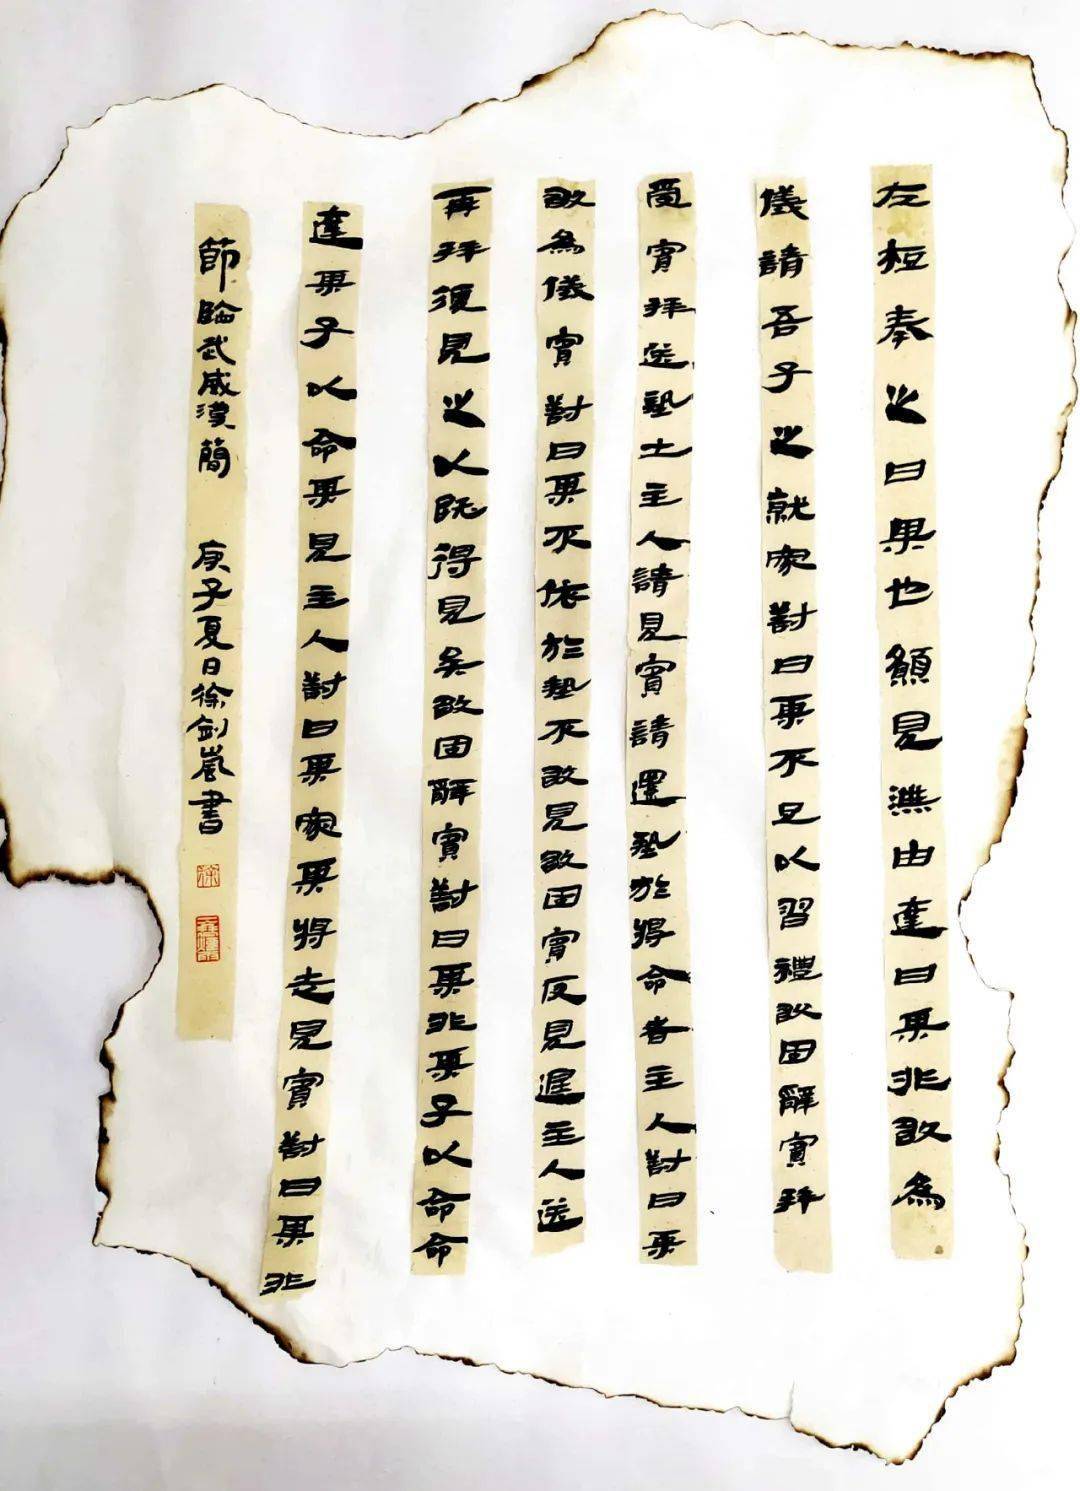 左梪奉之曰某也願見潕由達曰某非敢為
儀請吾子之就家對曰某不足以習禮敢固辭賓拜
受賓拜送墊士主人請見賓請還墊於將命者主人對曰某
敢為儀賓對曰某不依於墊不敢見敢固賓反見退主人送
再拜復見之以既得見矣敢固辭賓對曰某非某子以命命
達某子以命某見主人對曰某家某將走見賓對曰某非
節臨武威漢簡 庚子夏日徐劍嵐書
徐